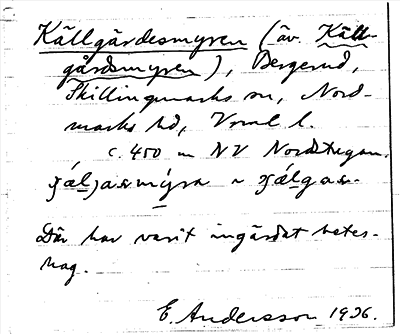 Källgärdesmyren (äv. Käll-
gårdsmyren), Bergerud,
Skillingmarks sn, Nord-
marks hd, Vrml. l.
c. 450 m NV Nordstugan.
Där har varit ingärdat betes-
hag.
E. Andersson 1936.